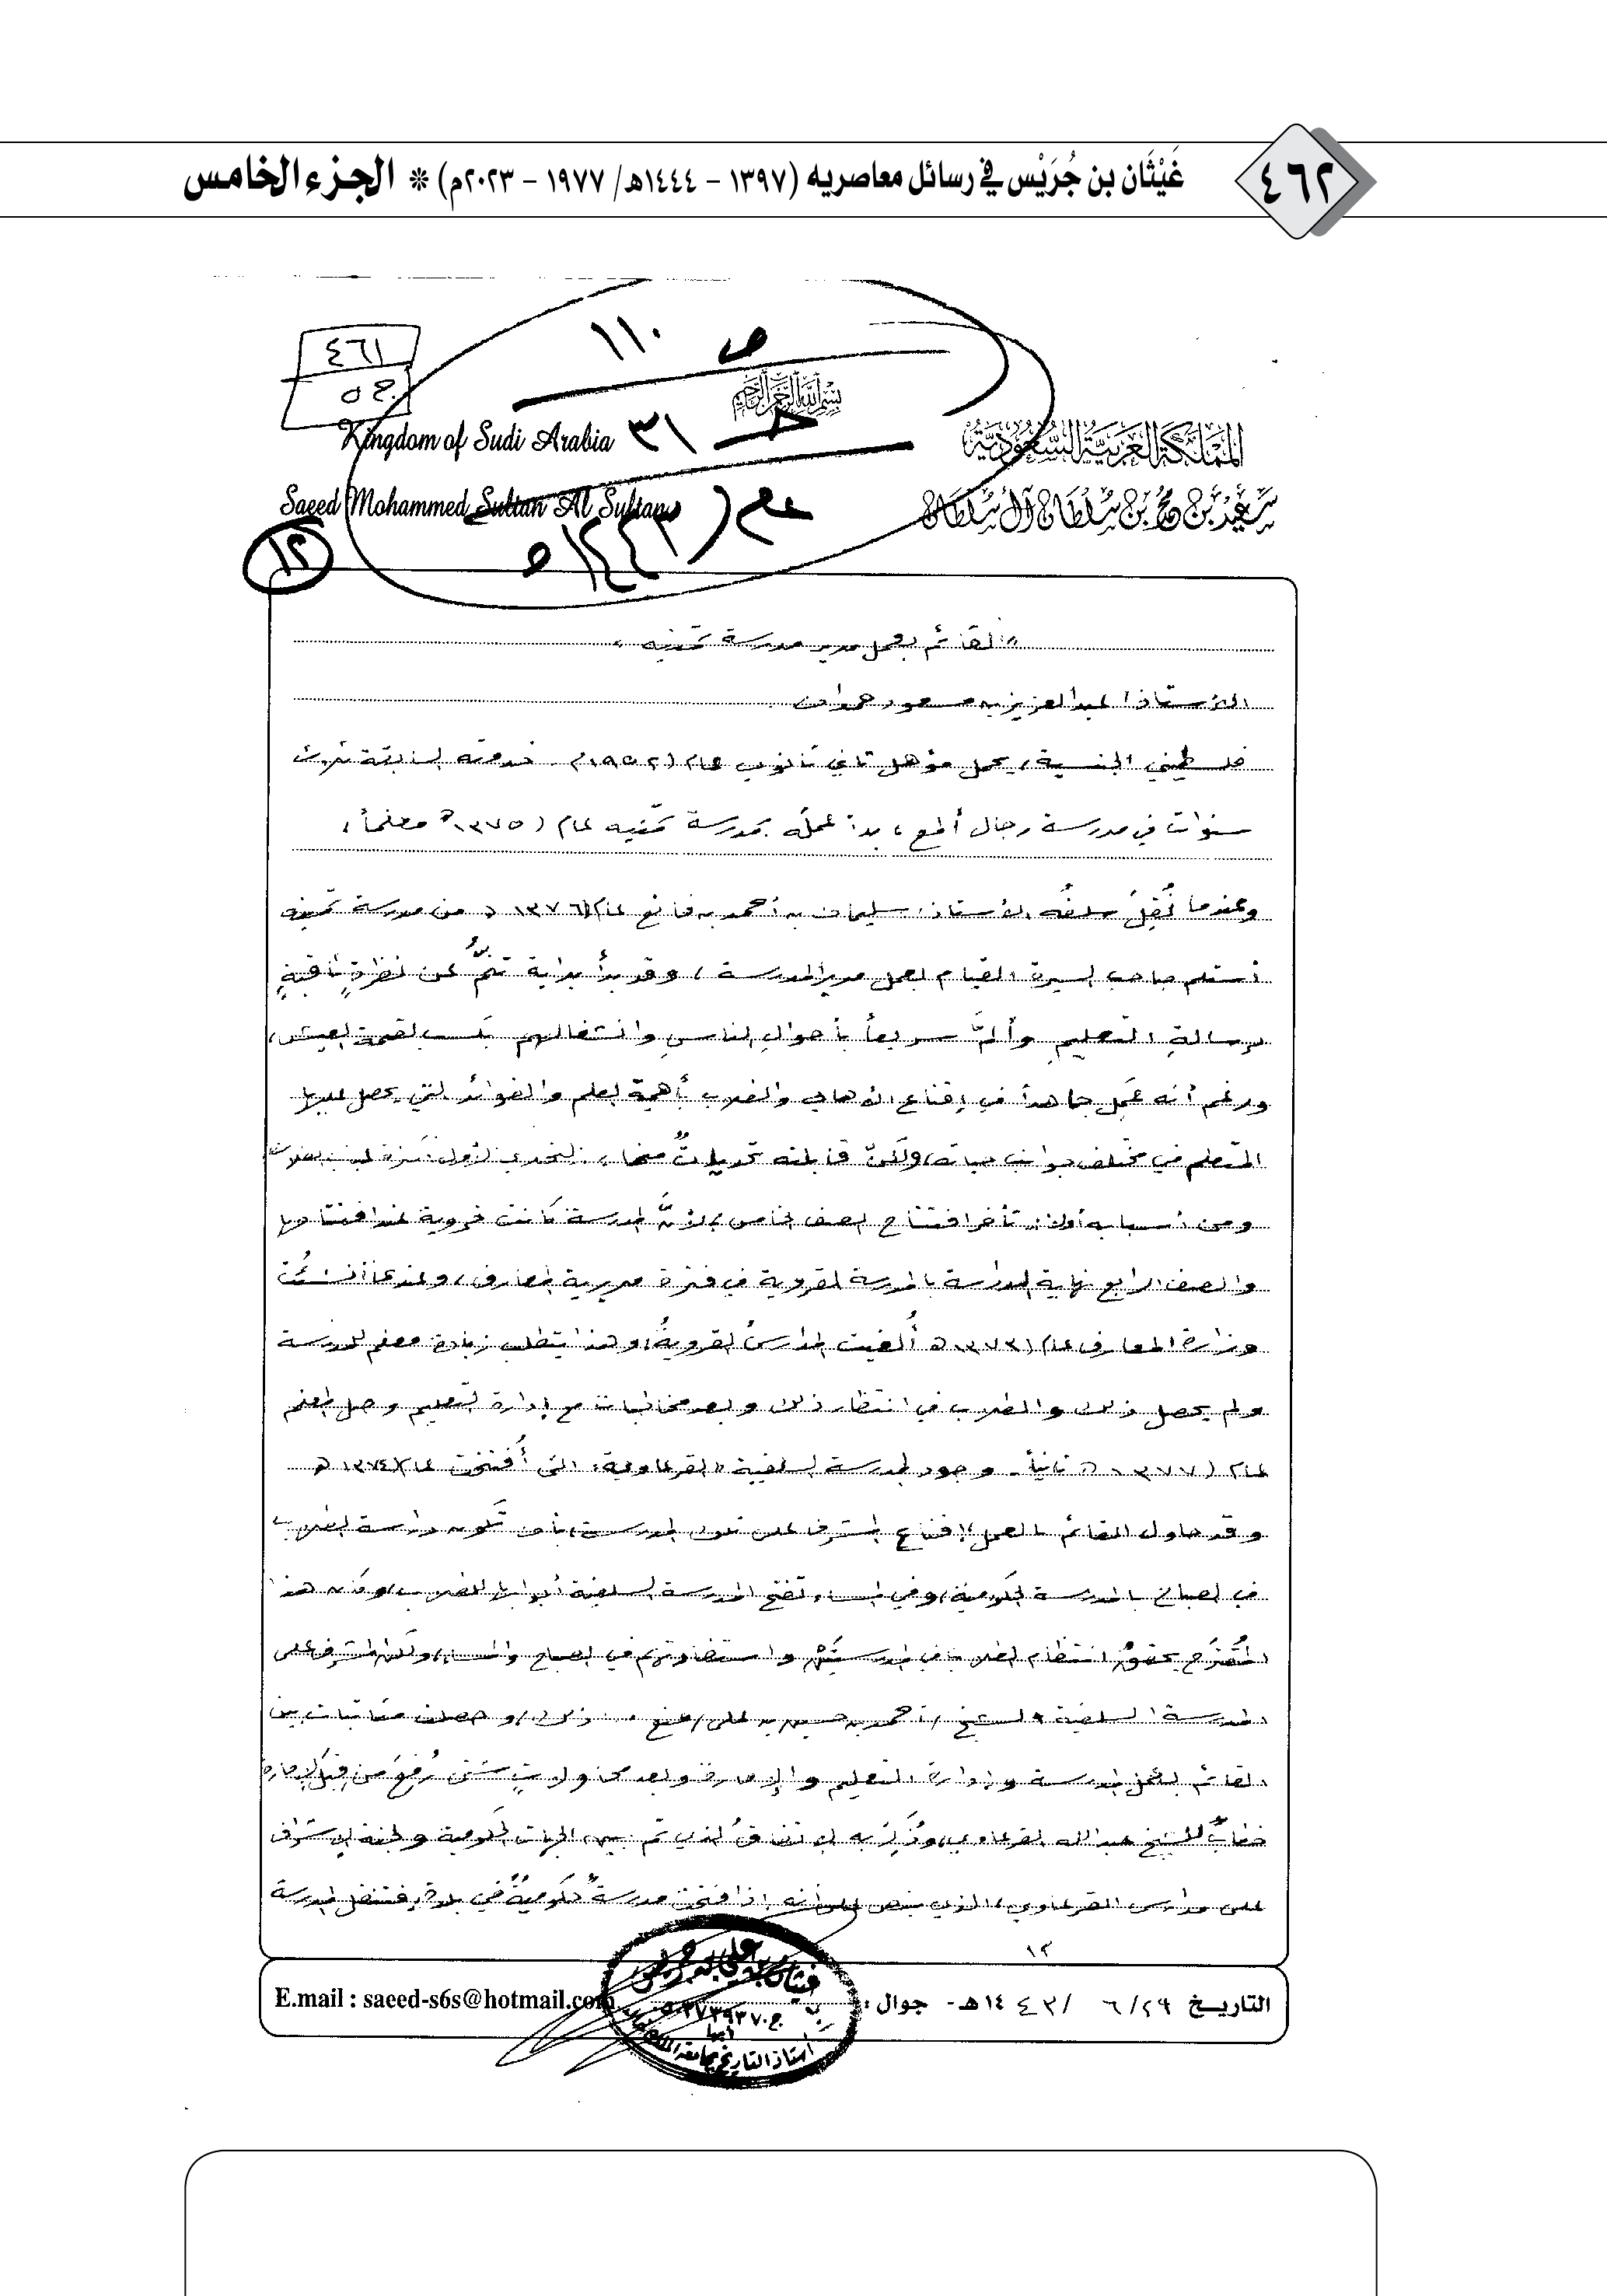 ٤٦٢
غَيْثَان بن جُرَيْس في رسائل معاصريه (١٣٩٧ - ١٤٤٤هـ/ ١٩٧٧ - ٢٠٢٣م) * الجزء الخامس
ص ١١٠
٤٦١
ج ٥
بسم الله الرحمن الرحيم
Kingdom of Sudi Arabia
المملكة العربية السعودية
ج ٣١
Saeed Mohammed Sultan Al Sultan
سعيد بن محمد بن سلطان آل سلطان
١٢
"القائم بعمل مدير مدرسة تمنيه"
الأستاذ/ عبدالعزيز مسعود حمدان
فلسطيني الجنسية، يحمل مؤهل ثاني ثانوي عام (١٩٥٢م) خدمته السابقة ثلاث
سنوات في مدرسة رجال ألمع، بدأ عمله بمدرسة تمنيه عام (١٣٧٥هـ معلماً،
وعندما نُقِلَ سلفُه الأستاذ/ سليمان بن أحمد بن فائع عام (١٣٧٦هـ من مدرسة تمنيه
استلم صاحب السيرة القيام بعمل مدير المدرسة، وقد بدأ بداية تنمُّ عن نظرةٍ ثاقبةٍ
لرسالةِ التعليمِ وألمَّ سريعاً بأحوالِ الناسِ وانشغالهم بكسب لقمة العيش،
ورغم أنه عَمِل جاهداً في إقناع الأهالي والطلاب بأهمية العلم والفوائد التي يحصل عليها
المتعلم في مختلف جوانب حياته، ولكن قابلته تحدياتٌ منها: التحدي الأول: كثرة غياب الطلاب
ومن أسبابه أولاً: تأخر افتتاح الصف الخامس، لأنَّ المدرسة كانت قروية عند افتتاحها
والصف الرابع نهاية الدراسة بالمدرسة القروية في فترة مديرية المعارف، وعندما أنشئت
وزارة المعارف عام (١٣٧٣هـ أُلغيت المدارسُ القرويةُ، وهذا يتطلب زيادة معلم للمدرسة
ولم يحصل ذلك والطلاب في انتظار ذلك وبعد مخاطبات مع إدارة التعليم وصل المعلم
عام (١٣٧٧هـ ثانياً - وجود المدرسة السلفية "القرعاوية" التي أُفتتحت عام (١٣٧٤هـ
وقد حاول القائم بالعمل إقناع المشرف على تلك المدرسة، بأن تكون دراسة الطلاب
في الصباح بالمدرسة الحكومية، وفي المساء تفتح المدرسة السلفية أبوابها للطلاب، وكان هذا
المُقترَح يحقق انتظام الطلاب في المدرستَيْن واستفادتهم في الصباح والمساء، ولكن المشرف على
المدرسة السلفية الشيخ/ أحمد بن حسين بن علي/ منع ذلك، وحصلت مكاتبات بين
القائم بعمل المدرسة وإدارة التعليم والإمارة وبعد محاولاتٍ شتى رُفِعَ من قِبَل الإمارة
خطابٌ للشيخ عبدالله القرعاوي، وذُكِّرَ به الاتفاقُ الذي تم بين الجهات الحكومية ولجنة الإشراف
على مدارس القرعاوي، الذي ينص على أنه إذا فتحت مدرسةٌ حكوميةٌ في بلدة، فتنقل المدرسة
١٢
التاريخ ٢٩/ ٦ /١٤٤٣هـ - جوال :
E.mail : saeed-s6s@hotmail.com
أبها
أستاذ التاريخ بجامعة الملك خالد